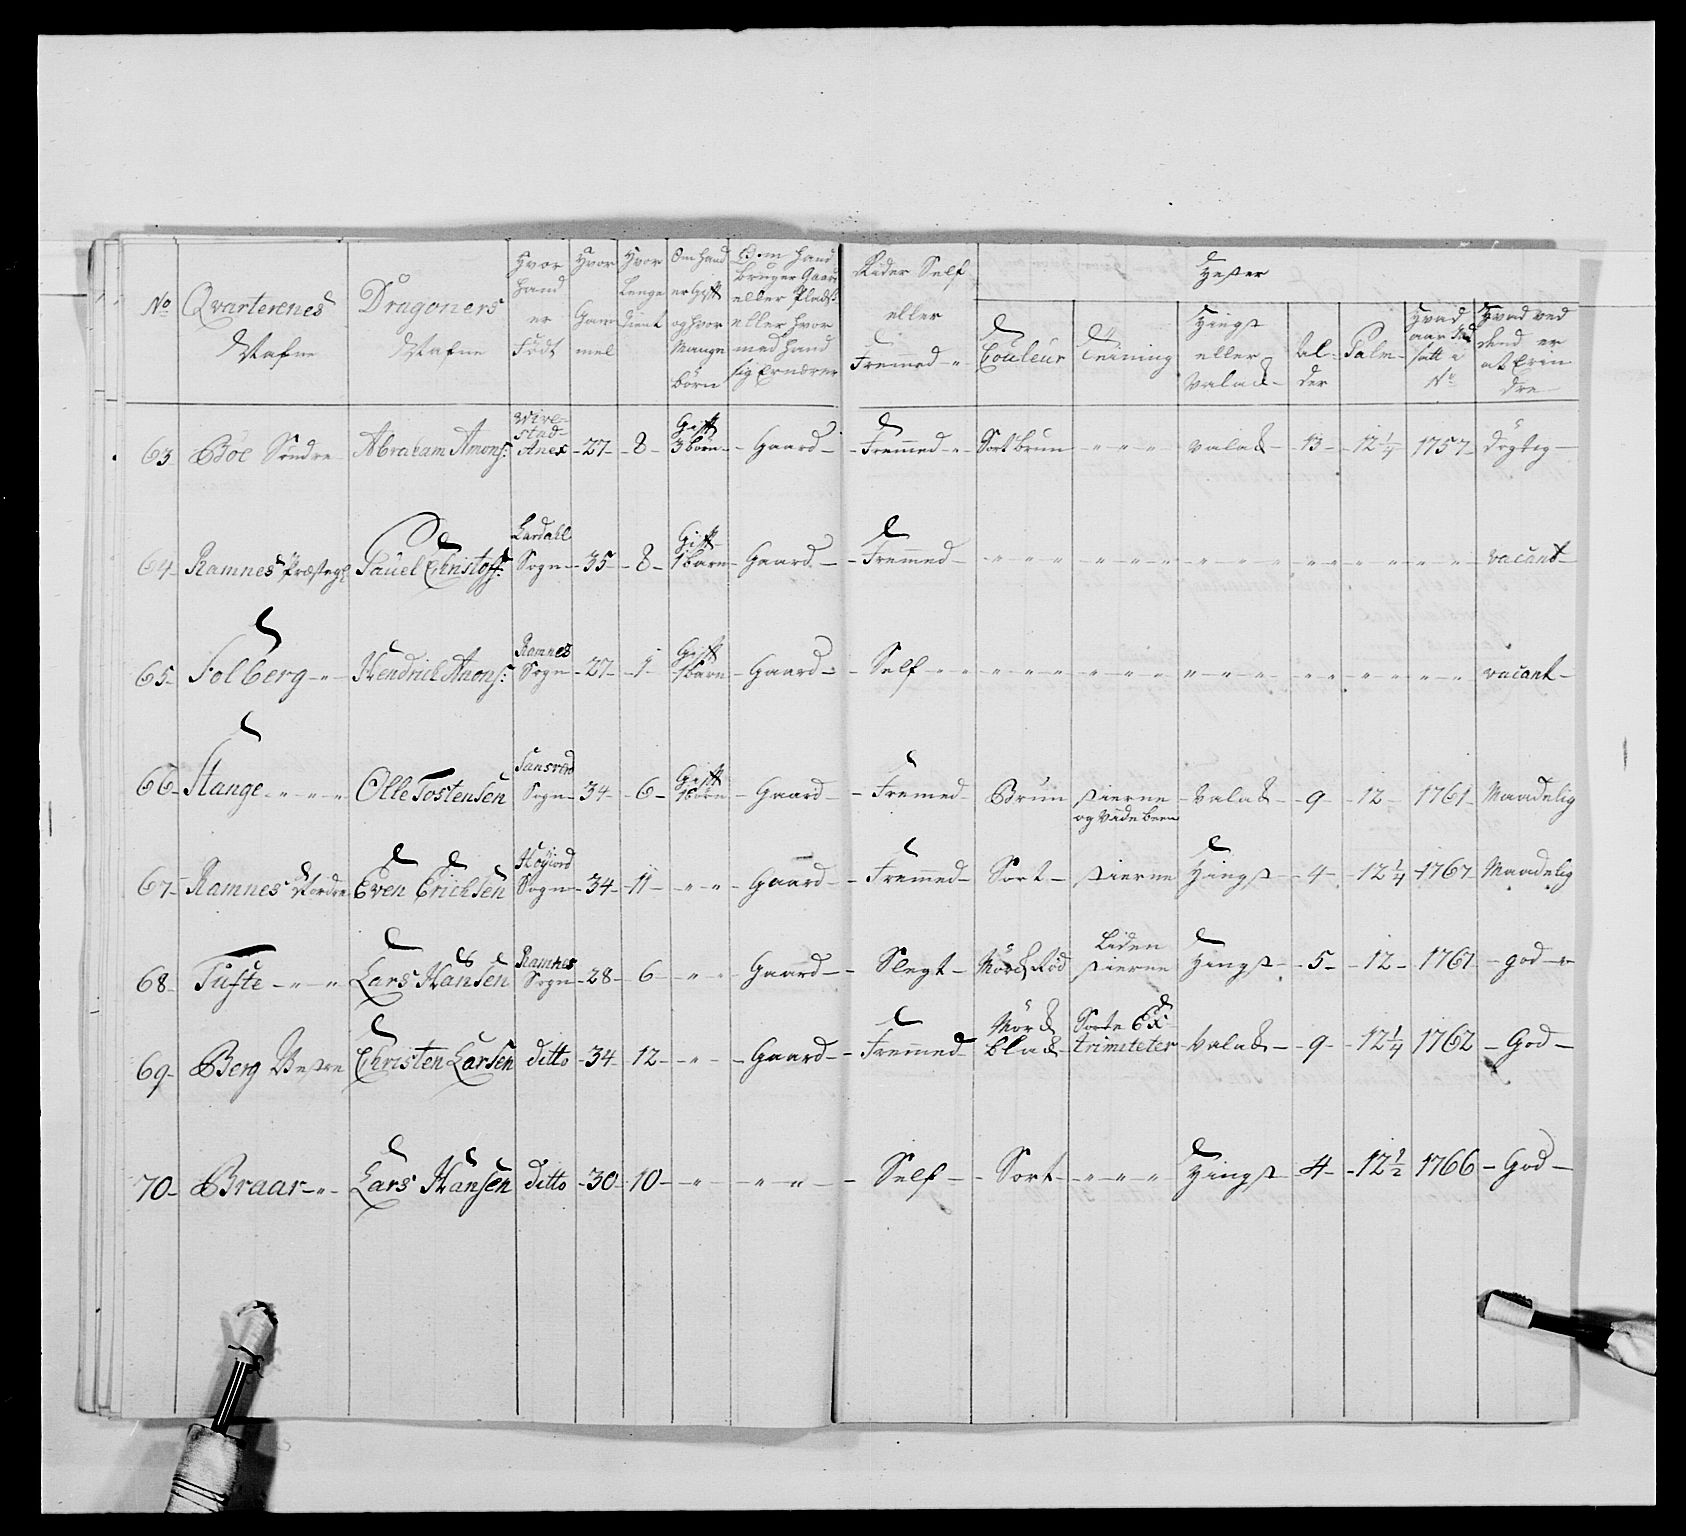 No | Qvarterenes Nafne | Dragoners Nafne | Hvor hand er Födt | Hvor Gam mel | Hvor Lenge tient | Om hand er Gift og hvor Mange börn | Om hand bruger Gaard eller Plads eller hvor med hand sig Ernærer | Rider Self eller Fremmed | Hester
Couleur | Teining | Hingst eller Valack | Al- der | Palm | Hvad aar ind satt i No | Hvad ved dend er at Erin dre
63 | Böe Söndre | Abraham Amons: | Wive- stad Anex | 27 | 8 | Gift 3 börn | Gaard | Fremmed | Sort brun | " " " | Valack | 13 | 12 1/4 | 1757 | dögtig
64 | Ramnes Præstegl | Pauel Christoff: | Lardahl Sogn | 35 | 8 | Gift 1 barn | Gaard | Fremmed | " " " | " " " | " " " | " " | " " | " " | vacant
65 | Folberg | Hendrich Amons: | Ramnes Sogn | 27 | 1 | Gift 1 barn | Gaard | Self | " " " | " " " | " " " | " " | " " | " " | vacant
66 | Stange | Olle Tostensen | Sansverd Sogn | 34 | 6 | Gift 1 börn | Gaard | Fremed | Brun | stierne og Vide been | Valack | 9 | 12 | 1761 | Maadelig
67 | Ramnes Nordre | Even Erichsen | Höyiord Sogn | 34 | 11 | " " | Gaard | Fremmed | Sort | stierne | Hingst | 4 | 12 1/4 | 1767 | Maadelig
68 | Tufte | Lars Hansen | Ramnes Sogn | 28 | 6 | " " | Gaard | Slegt | Mörck Röd | Liden stierne | Hingst | 5 | 12 | 1761 | god
69 | Berg Vestre | Christen Larsen | ditto | 34 | 12 | " | Gaard | Fremmed | Mörck black | Sorte Ex- trimiteter | Valack | 9 | 12 1/4 | 1762 | God
70 | Braar | Lars Hansen | ditto | 30 | 10 | " | " " | Self | Sort | " " " | Hingst | 4 | 12 1/2 | 1766 | God